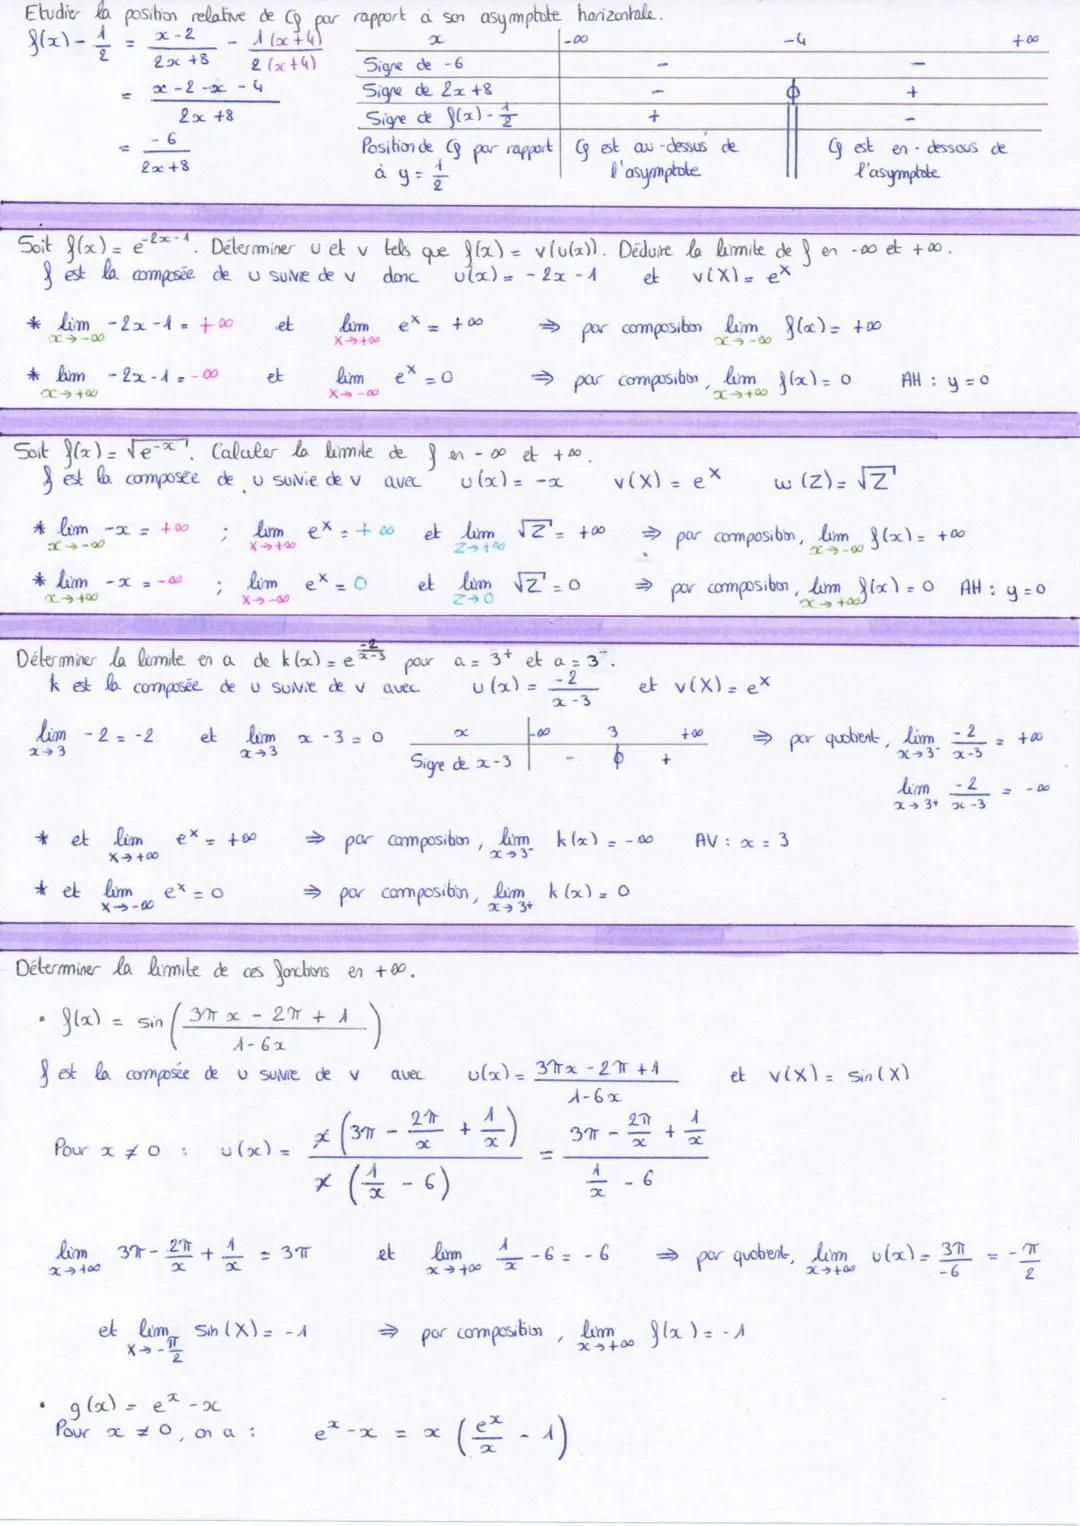 Etudier la position relative de Cf par rapport à son asymptote horizontale.
f(x) - 1/2 = (x-2)/(2x+8) - 1(x+4)/2(x+4)
= (x-2-x-4)/(2x+8)
= -6/(2x+8)
x | -∞ -4 +∞
Signe de -6 | - -
Signe de 2x+8 | - 0 +
Signe de f(x)-1/2 | + || -
Position de Cf par rapport à y = 1/2 | Cf est au-dessus de l'asymptote || Cf est en-dessous de l'asymptote
Soit f(x) = e^(-2x-1). Déterminer u et v tels que f(x) = v(u(x)). Déduire la limite de f en -∞ et +∞.
f est la composée de u suivie de v donc u(x) = -2x-1 et v(X) = e^X
* lim x→-∞ -2x-1 = +∞ et lim X→+∞ e^X = +∞ ⇒ par composition lim x→-∞ f(x) = +∞
* lim x→+∞ -2x-1 = -∞ et lim X→-∞ e^X = 0 ⇒ par composition, lim x→+∞ f(x) = 0 AH : y=0
Soit f(x) = √(e^(-x)). Calculer la limite de f en -∞ et +∞.
f est la composée de u suivie de v avec u(x) = -x v(X) = e^X w(Z) = √Z
* lim x→-∞ -x = +∞ ; lim X→+∞ e^X = +∞ et lim Z→+∞ √Z = +∞ ⇒ par composition, lim x→-∞ f(x) = +∞
* lim x→+∞ -x = -∞ ; lim X→-∞ e^X = 0 et lim Z→0 √Z = 0 ⇒ par composition, lim x→+∞ f(x) = 0 AH : y=0
Déterminer la limite en a de k(x) = e^(-2/(x-3)) pour a = 3⁺ et a = 3⁻.
k est la composée de u suivie de v avec u(x) = -2/(x-3) et v(X) = e^X
lim x→3 -2 = -2 et lim x→3 x-3 = 0
x | -∞ 3 +∞
Signe de x-3 | - 0 +
⇒ par quotient, lim x→3⁻ -2/(x-3) = +∞
lim x→3⁺ -2/(x-3) = -∞
* et lim X→+∞ e^X = +∞ ⇒ par composition, lim x→3⁻ k(x) = -∞ AV : x = 3
* et lim X→-∞ e^X = 0 ⇒ par composition, lim x→3⁺ k(x) = 0
Déterminer la limite de ces fonctions en +∞.
• f(x) = sin((3πx - 2π + 1)/(1-6x))
f est la composée de u suivie de v avec u(x) = (3πx - 2π + 1)/(1-6x) et v(X) = sin(X)
Pour x ≠ 0 : u(x) = x(3π - 2π/x + 1/x)/x(1/x - 6) = (3π - 2π/x + 1/x)/(1/x - 6)
lim x→+∞ 3π - 2π/x + 1/x = 3π et lim x→+∞ 1/x - 6 = -6 ⇒ par quotient, lim x→+∞ u(x) = 3π/-6 = -π/2
et lim X→-π/2 sin(X) = -1 ⇒ par composition, lim x→+∞ f(x) = -1
• g(x) = e^x - x
Pour x ≠ 0, on a : e^x - x = x(e^x/x - 1)